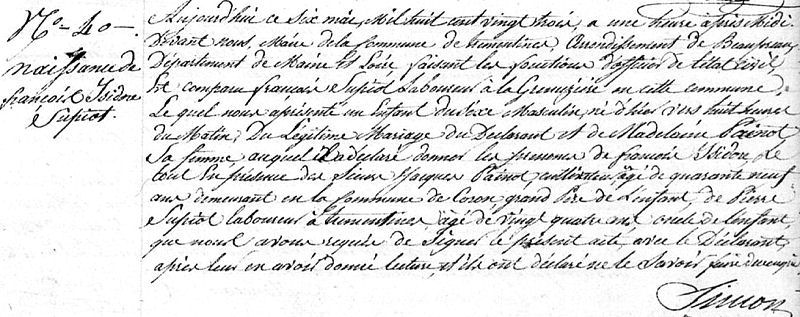 N.o 40.
naissance de
françois Isidore
Supiot.
Aujourd'hui ce six mai, Mil huit cent vingt trois, a une heure après Midi.
Devant nous, Maire de la Commune de trementines, Arrondissement de Beaupreau
Département de Maine et Loire faisant les fonctions d'officier de l'état civil
Est comparu françois Supiot Laboureur à la Grenuzière en cette commune,
Le quel nous a présenté un Enfant du Sexe Masculin, né d'hier vers huit heures
du Matin, Du Légitime Mariage du Déclarant Et de Madeleine Painot
Sa femme, auquel il a déclaré donner les prénoms de françois Isidore, Le
tout En présence des Sieurs Jacques Painot, cultivateur, âgé de quarante neuf
ans demeurant en la Commune de Coron, grand Père de L'enfant, de Pierre
Supiot laboureur à trementines, âgé de vingt quatre ans oncle de l'enfant,
que nous avons requis de Signer le présent acte, avec le Déclarant,
après leur en avoir donné lecture, et ils ont déclaré ne le Savoir faire
Simon